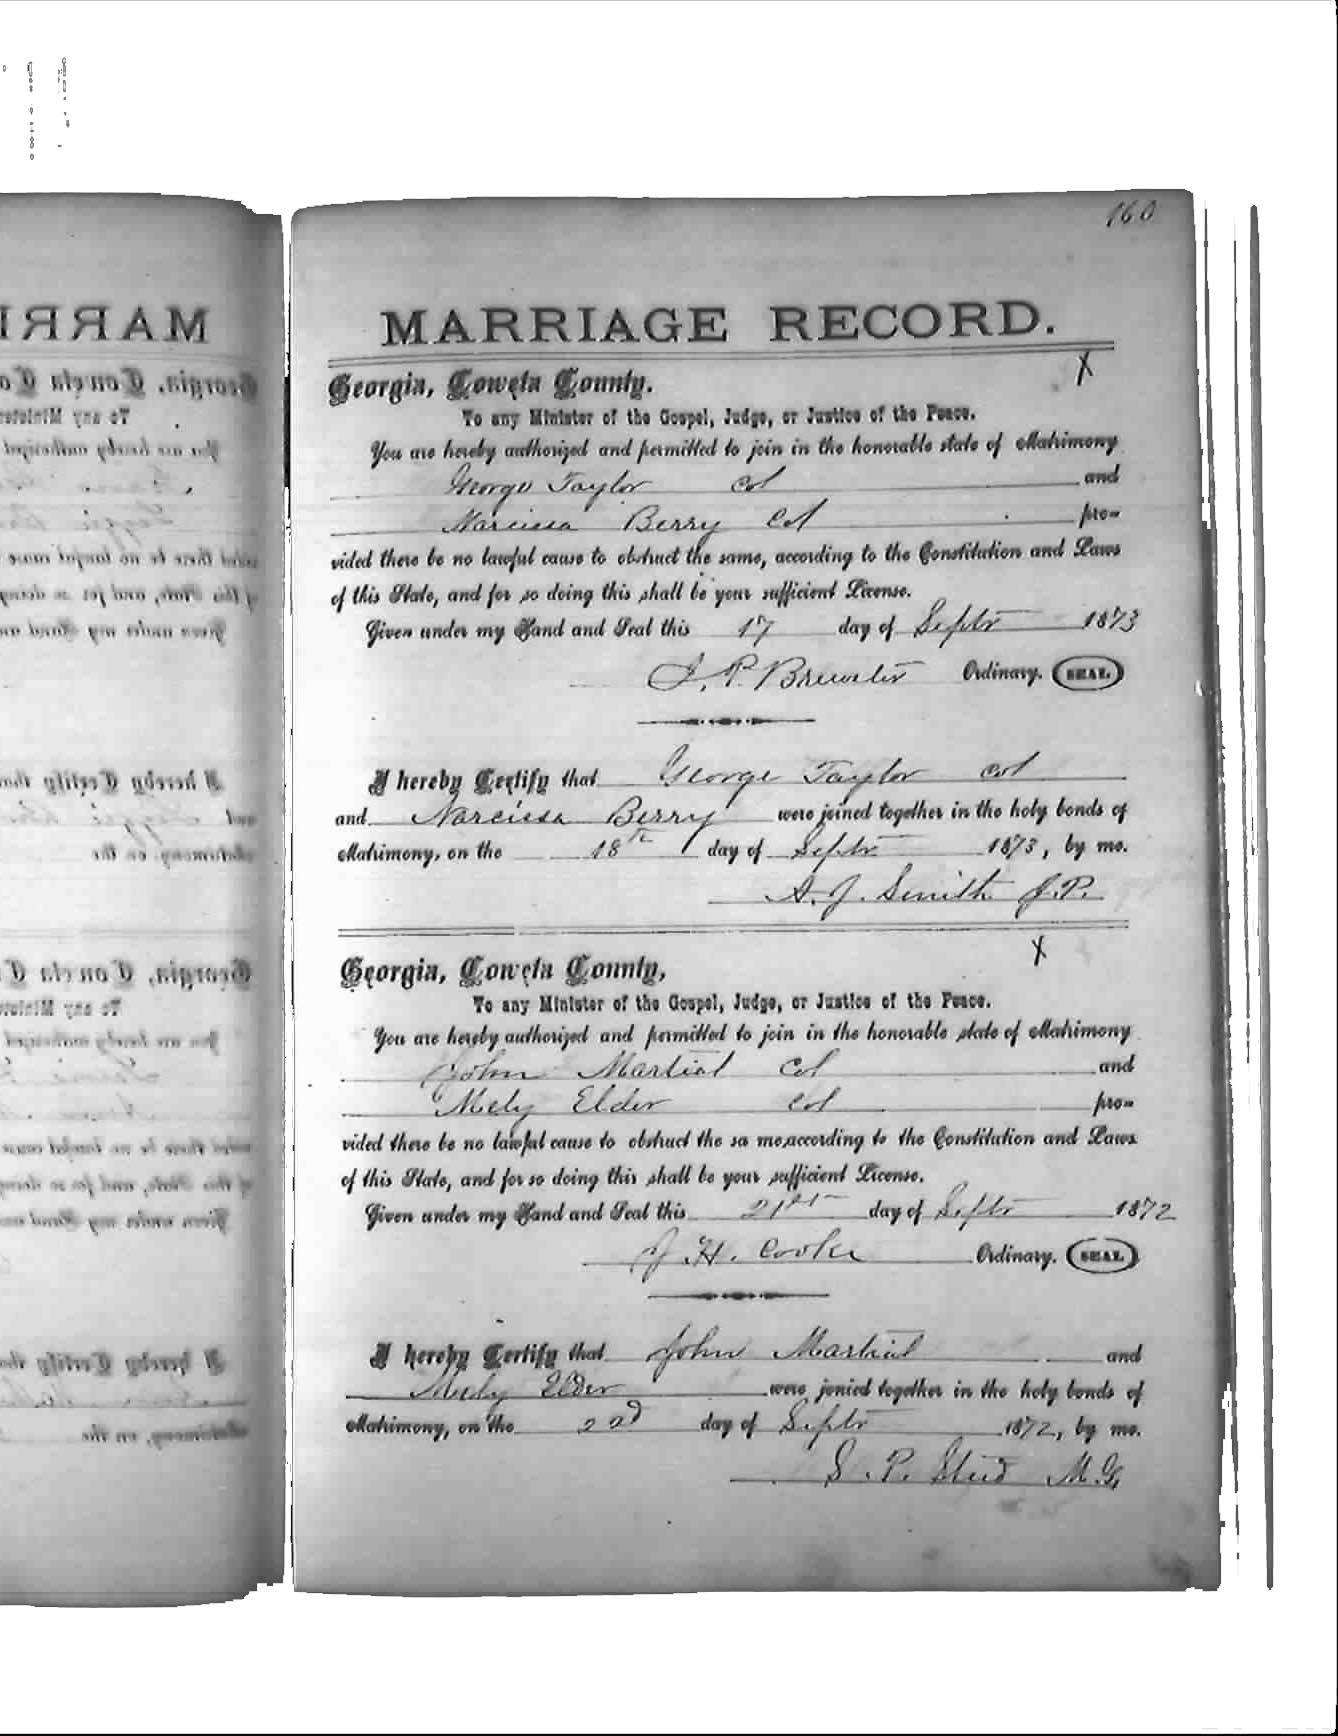 160
MARRIAGE RECORD.
X
Georgia, Coweta County.
To any Minister of the Gospel, Judge, or Justice of the Peace.
You are hereby authorized and permitted to join in the honorable state of Matrimony
George Taylor col and
Narcissa Berry col pro-
vided there be no lawful cause to obstruct the same, according to the Constitution and Laws
of this State, and for so doing this shall be your sufficient License.
Given under my Hand and Seal this 17 day of Septr 1873
J. P. Brewster Ordinary. SEAL
I hereby Certify that George Taylor col
and Narcissa Berry were joined together in the holy bonds of
Matrimony, on the 18th day of Septr 1873, by me.
A. J. Smith J.P.
X
Georgia, Coweta County,
To any Minister of the Gospel, Judge, or Justice of the Peace.
You are hereby authorized and permitted to join in the honorable state of Matrimony
John Martial col and
Mely Elder col pro-
vided there be no lawful cause to obstruct the sa me,according to the Constitution and Laws
of this State, and for so doing this shall be your sufficient License.
Given under my Hand and Seal this 21st day of Septr 1872
J. H. Cooke Ordinary. SEAL
I hereby Certify that John Martial and
Mely Elder were jonied together in the holy bonds of
Matrimony, on the 22d day of Septr 1872, by me.
S. P. M.G.